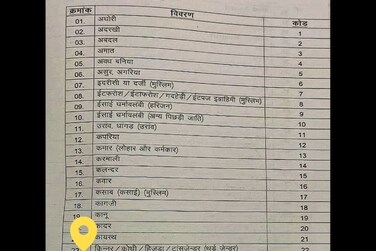 क्रमांक विवरण कोड
01. अघोरी 1
02. अदरखी 2
03. अबदल 3
04. अमात 4
05. अवध बनिया 5
06. असुर, अगरिया 6
07. इदरीसी या दर्जी (मुस्लिम) 7
08. ईटफरोश/ईटाफरोश/गदहेडी/ईटपज इब्राहिमी (मुस्लिम) 8
09. ईसाई धर्मावलंबी (हरिजन) 9
10. ईसाई धर्मावलंबी (अन्य पिछड़ी जाति) 10
11. उरांव, धांगड़ (उरांव) 11
12. कपरिया 12
13. कमार (लोहार और कर्मकार) 13
14. करमाली 14
15. कलन्दर 15
16. कवार 16
17. कसाब (कसाई) (मुस्लिम) 17
18. कागजी 18
19. कानू 19
कादर 20
कायस्थ 21
22. किन्नर/कोथी/हिजड़ा/ट्रांसजेन्डर (थर्ड जेन्डर) 22